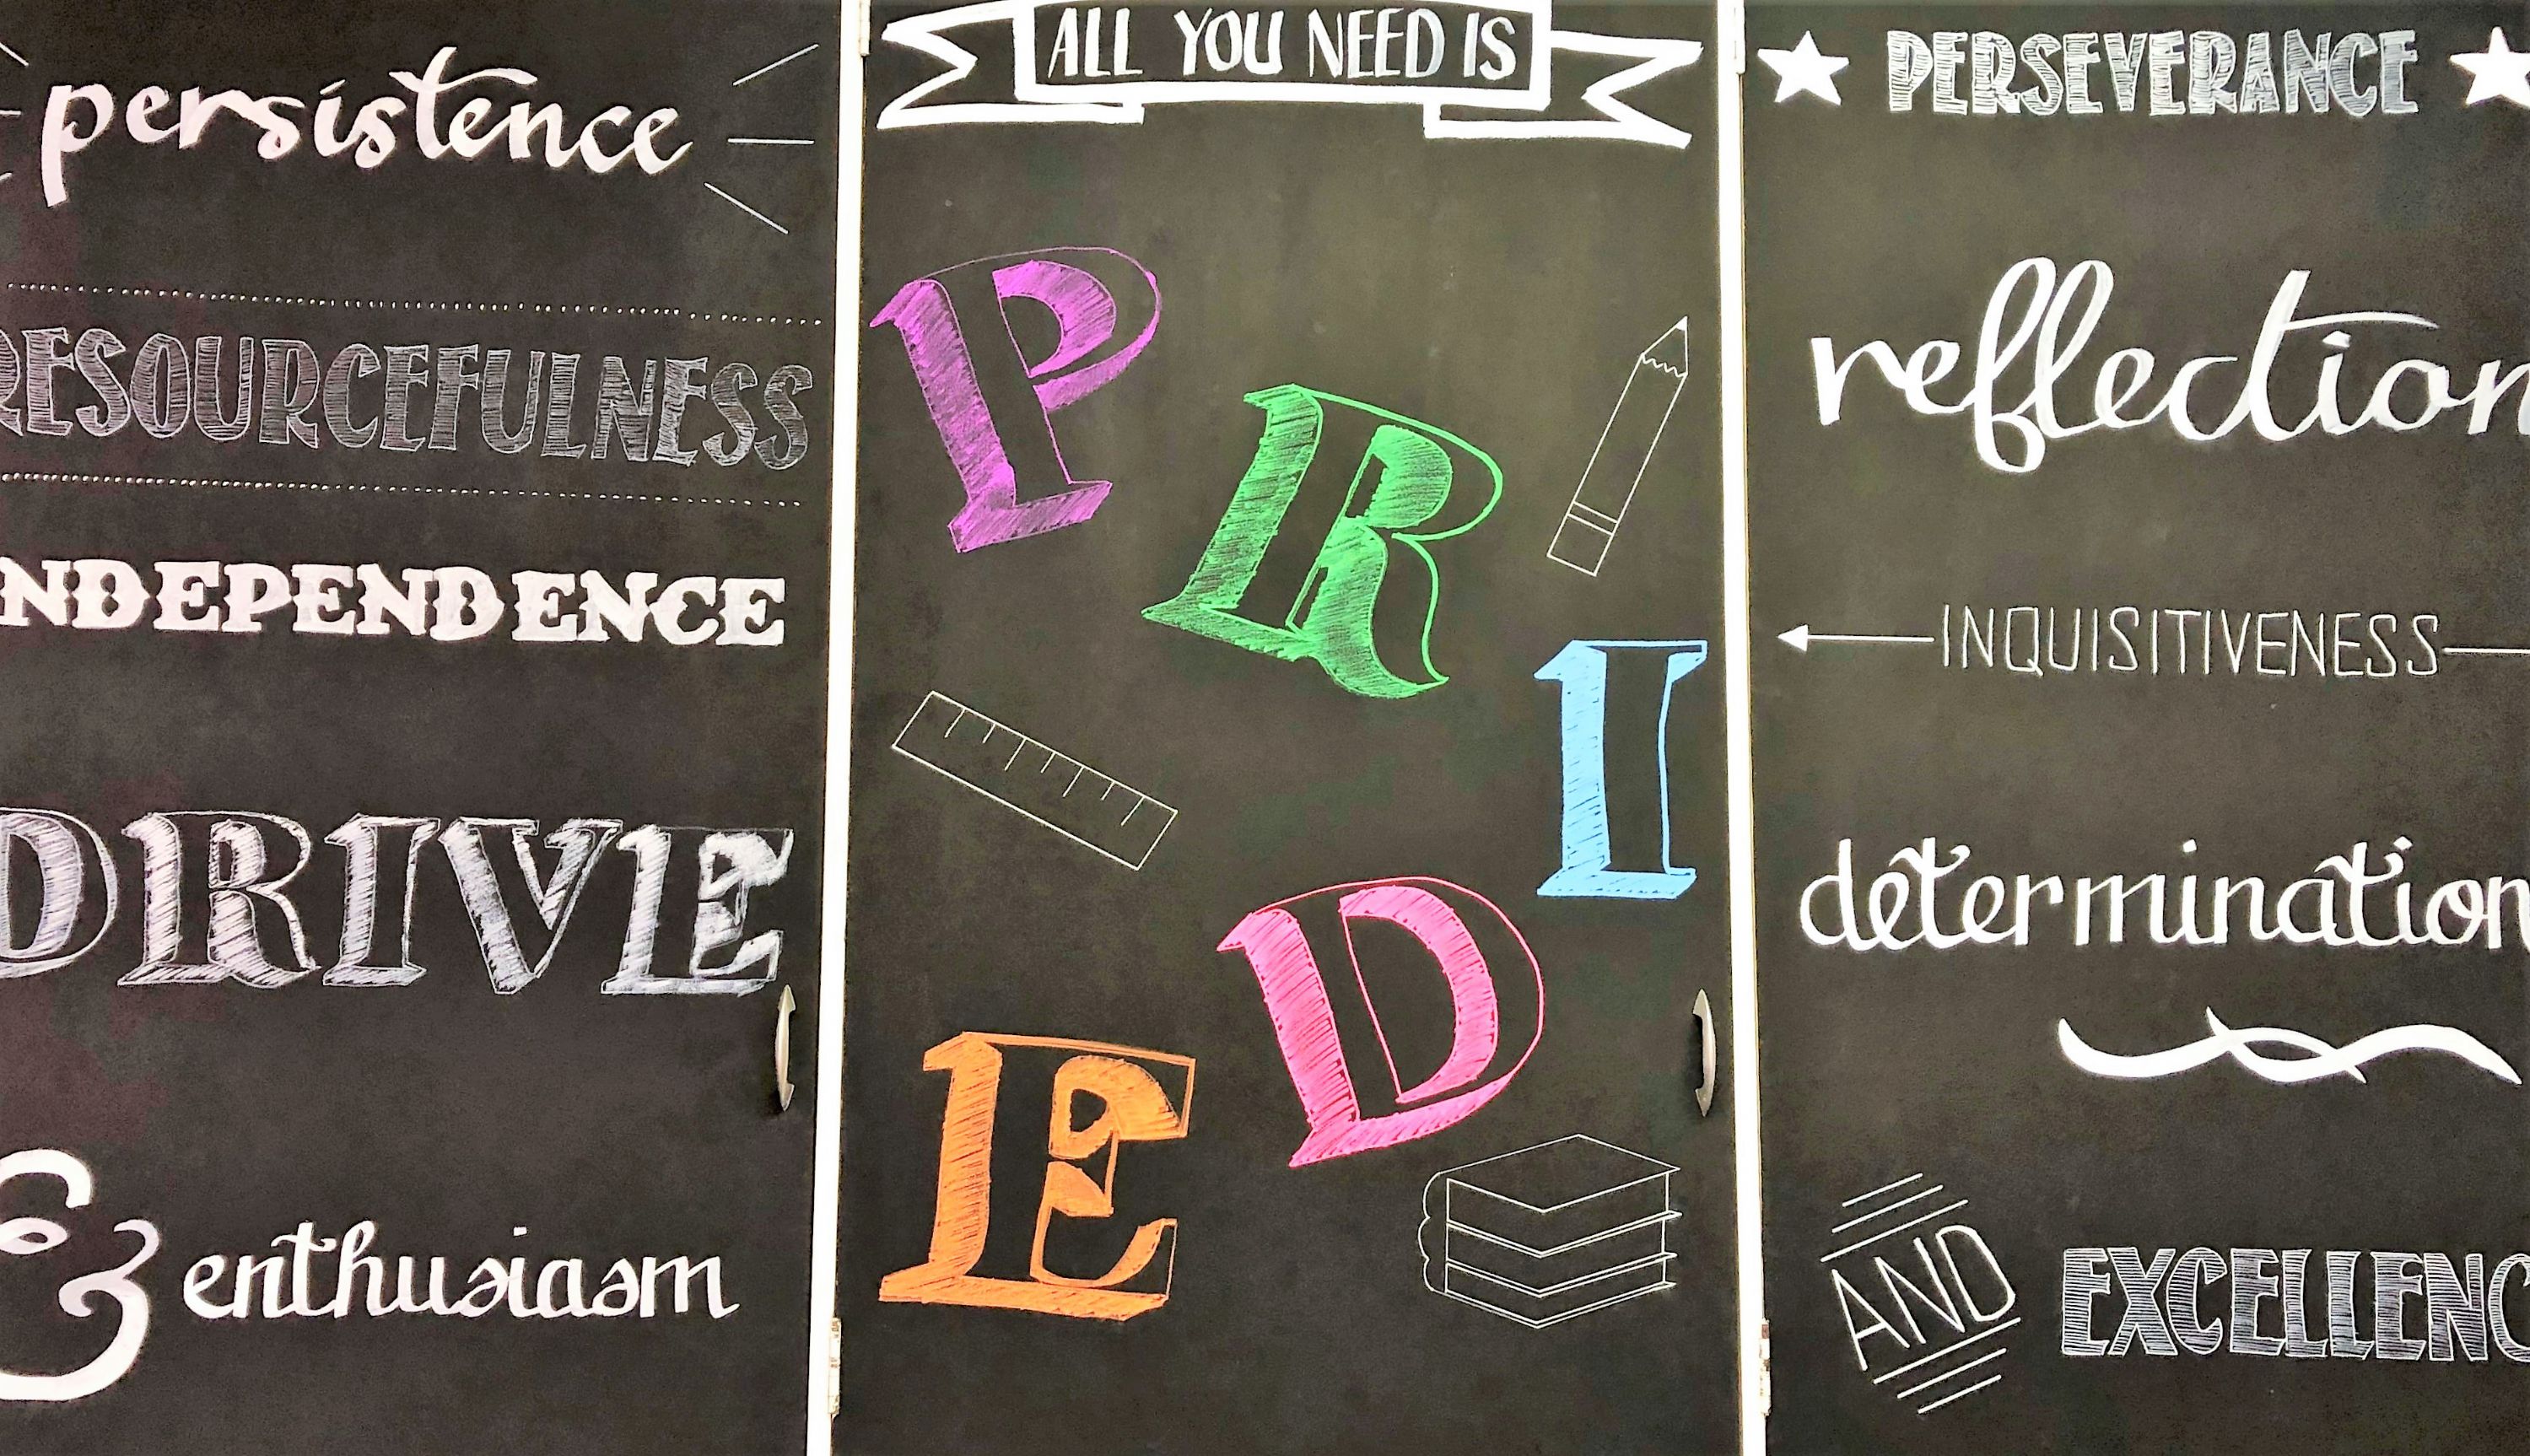 persistence
RESOURCEFULNESS
NDEPENDENCE
DRIVE
& enthusiasm
ALL YOU NEED IS
P
R
I
D
E
PERSEVERANCE
reflection
INQUISITIVENESS
determination
AND EXCELLENC